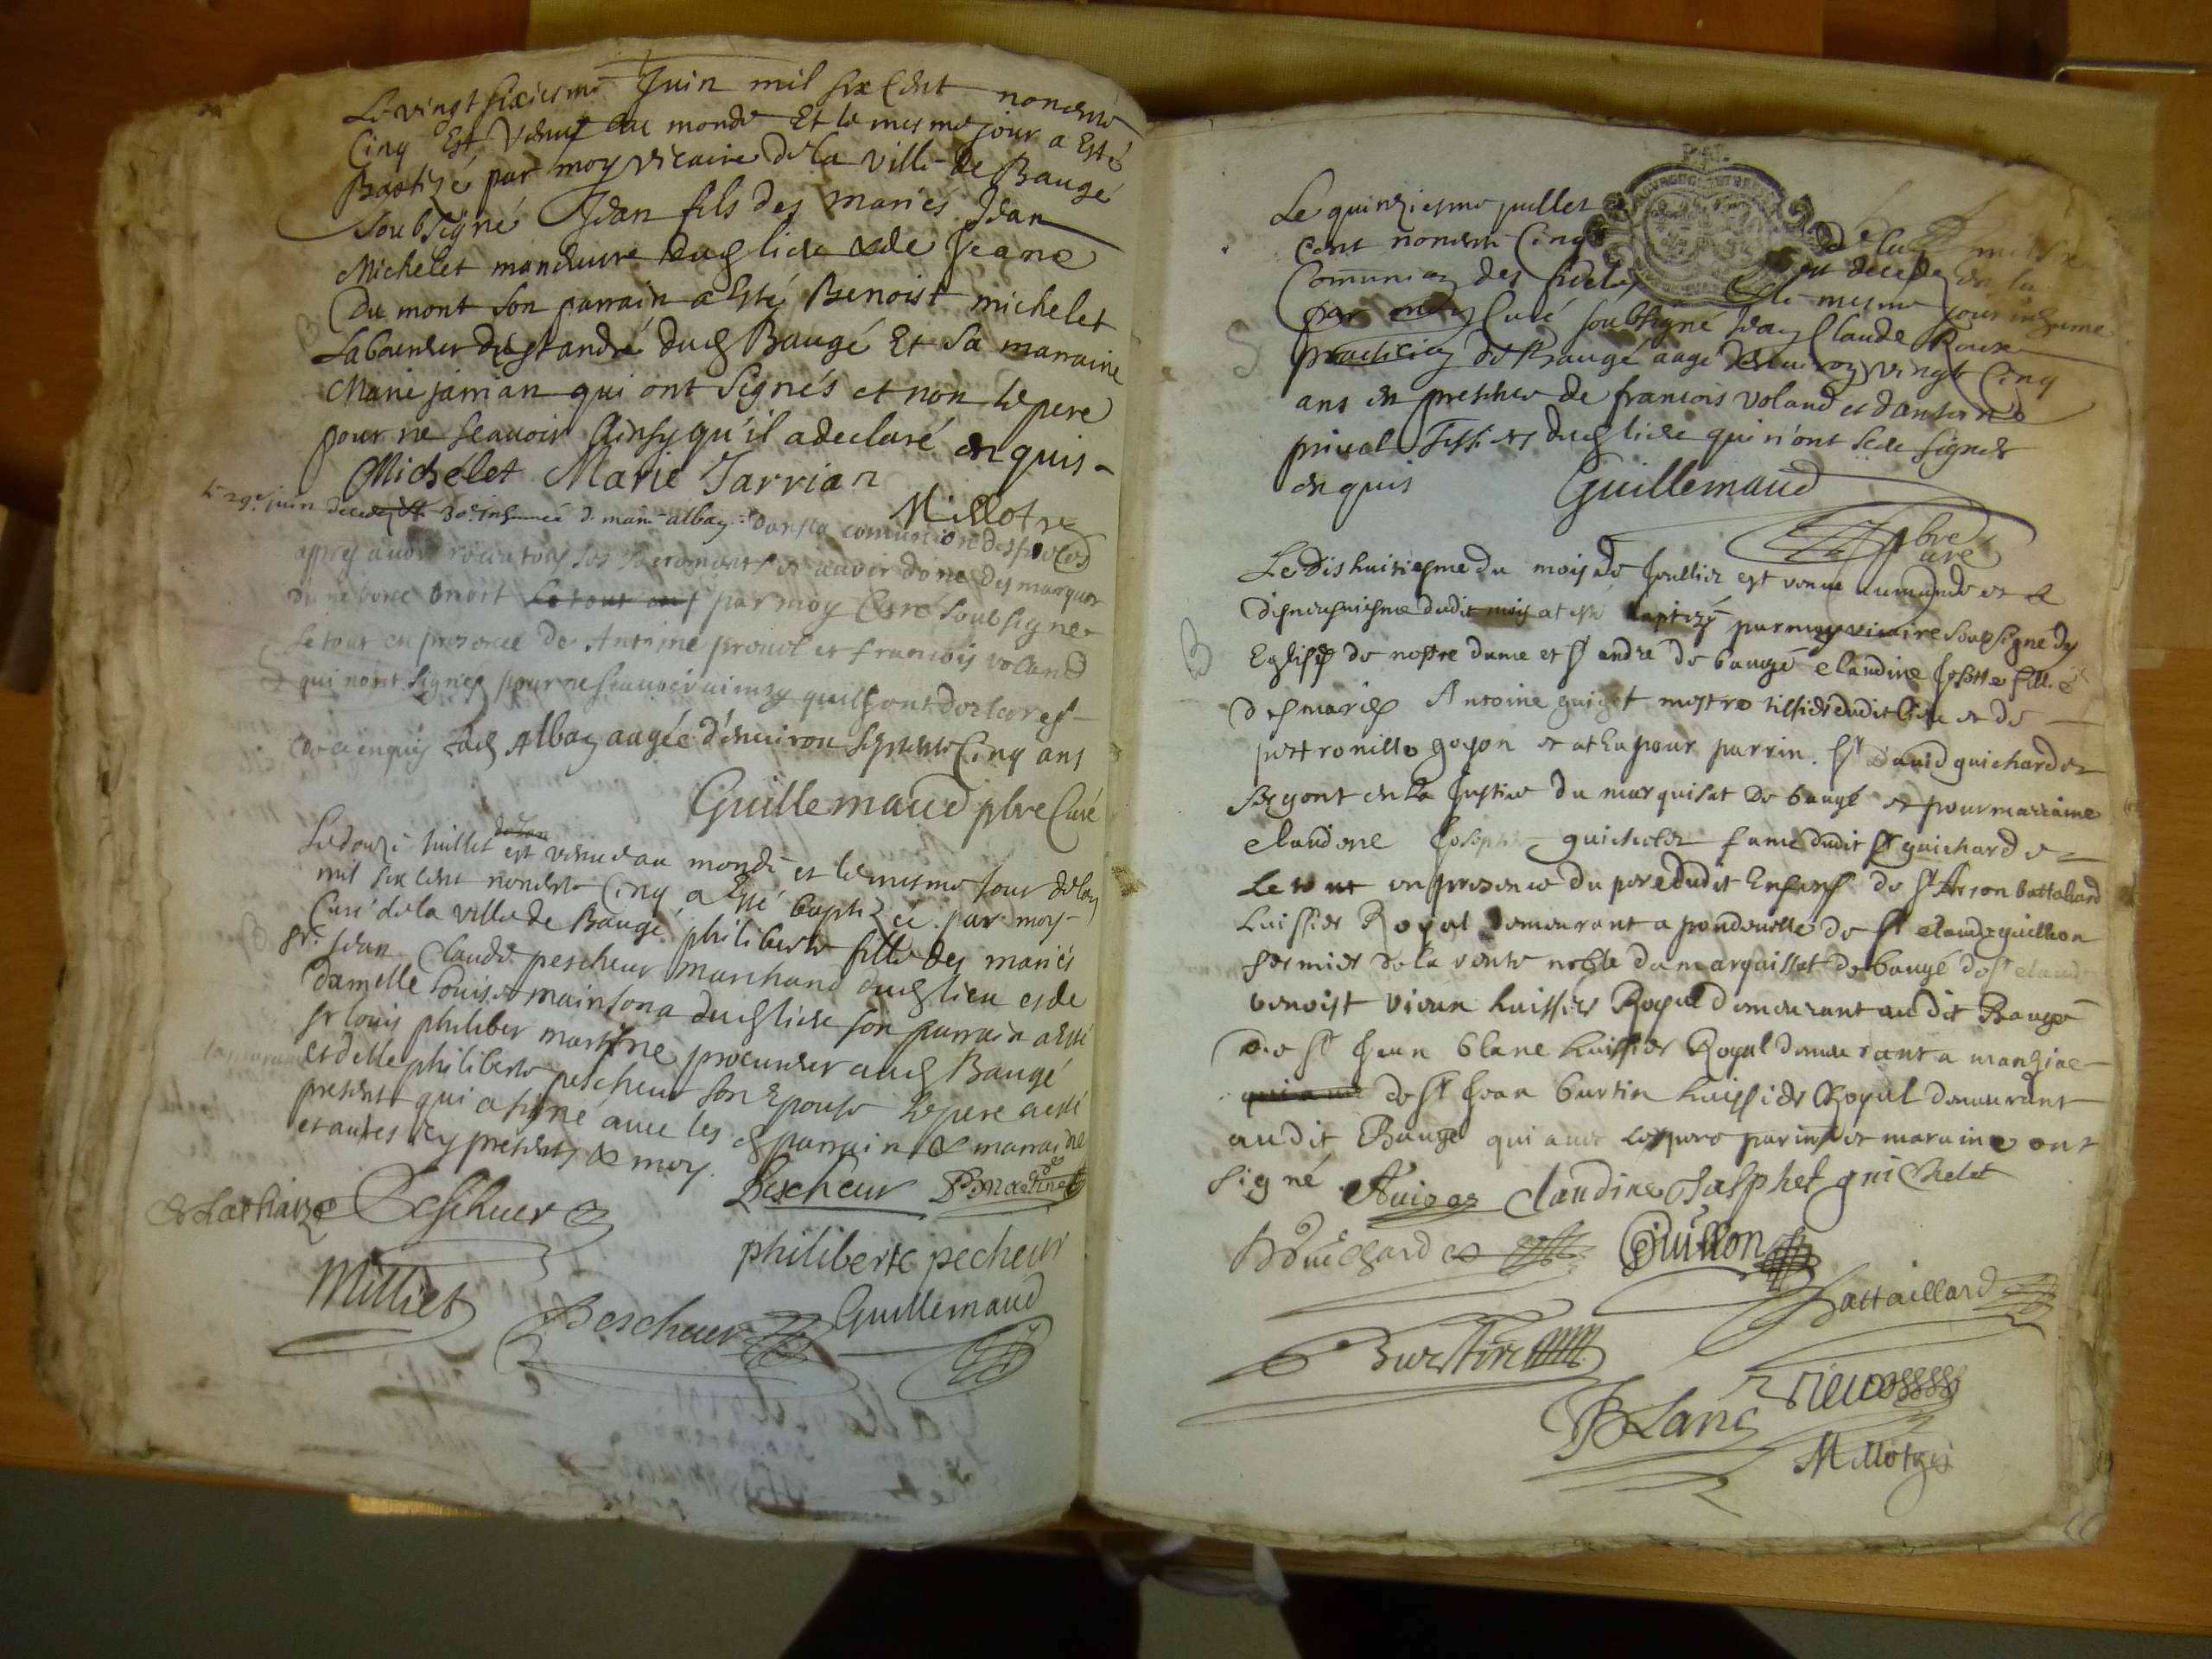 Le vingt sixiesme Juin mil six Cent nonente
Cinq Est Venuf au monde Et le mesme jour a Esté
Baptizé par moy vicaire de la ville de Baugé
soubsigné Jean fils des mariés Jean
Michelet maneuvre dud lieu & de Jeane
Du mont son parrain a Esté Benoist michelet
Laboureur de St andré dud Baugé Et sa maraine
Marie jarrian qui ont signés et non le pere
pour ne scauoir Ainsy qu'il a declaré enquis
Michélet Marie Jarrian
Millot
Le 29e juin decedez et 30e inhumée d. marie albay dans la comunion des fideles
appres auoir receu tous ses sacrements et auoir doné des marques
par moy Curé soubsigné
le tout en presence de Antoine preuol et francois voland
qui nont signés pour ne scauoir ainsy quils ont declares
de ce enquis lad Albay aagée d'enuiron septente Cinq ans
Guillemaud pbre Curé
Le douze Juillet est venue au monde et le mesme jour de lan
mil six cent nonente Cinq a Esté baptizée par moy
Curé de la ville de Baugé philiberte fille des mariés
sr. Jean Claude pescheur marchand dud lieu et de
damelle Louise mainsona dud lieu son parrain a esté
sr louis philiber martine procureur aud Baugé
et delle philiberte pescheur son Epouse le pere a esté
present qui a signé auec les d parrain & marraine
et autres icy présents & moy.
Pescheur P Martine
Pescheur
philiberte pecheur
Milliet
Pescheur Guillemaud
Le quinziesme juillet mil six
cent nonente Cinq est decedez de la
Comunion des fideles Et le mesme jour inhume
par moy Curé soubsigné Jean Claude Roux
practicien de Baugé aagé denuiron vingt Cinq
ans en presence de francois voland et dantoine
priual Tissiers dud lieu qui n'ont sceu signer
enquis Guillemaud
pbre
curé
Le dishuitiesme du mois de Juillet est venue au monde et le
disneufuiesme dudit mois at esté baptizé par moy vicaire soubsigne des
Eglises de nostre dame et St andré de baugé claudine Josette fille
des mariés Antoine guigot mestre tissier dudit lieu et de
pertronille goyon et at Eu pour parrin. Sr dauid guichard
Regent en la Justice du marquisat de baugé et pour maraine
claudine Joseph guichelet fame dudit Sr guichard
Le tout en presence du pere dudit Enfant de Sr battaliard
huissier Royal demeurant a pondeuelle de Sr claude guillon
fermier de la vente noble du marquissat de baugé de Sr claud
benoist vieux huissier Royal demeurant audit Baugé
de Sr Jean blanc huissier Royal demeurant a manziac
de Sr Jean burtin huissier Royal demeurant
audit Baugé qui auec les pere parin et maraine ont
signé Guigoz Claudine Jasphet guichelet
Guichard Guillon
Battaillard
Burtin
Vieux
Blanc
Millot